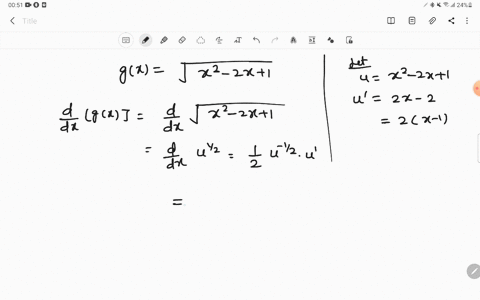 00:51
24%
Note
g(x) = √(x²-2x+1)
d/dx [g(x)] = d/dx √(x²-2x+1)
= d/dx u^(1/2) = 1/2 u^(-1/2) · u'
=
let
u = x²-2x+1
u' = 2x-2
= 2(x-1)